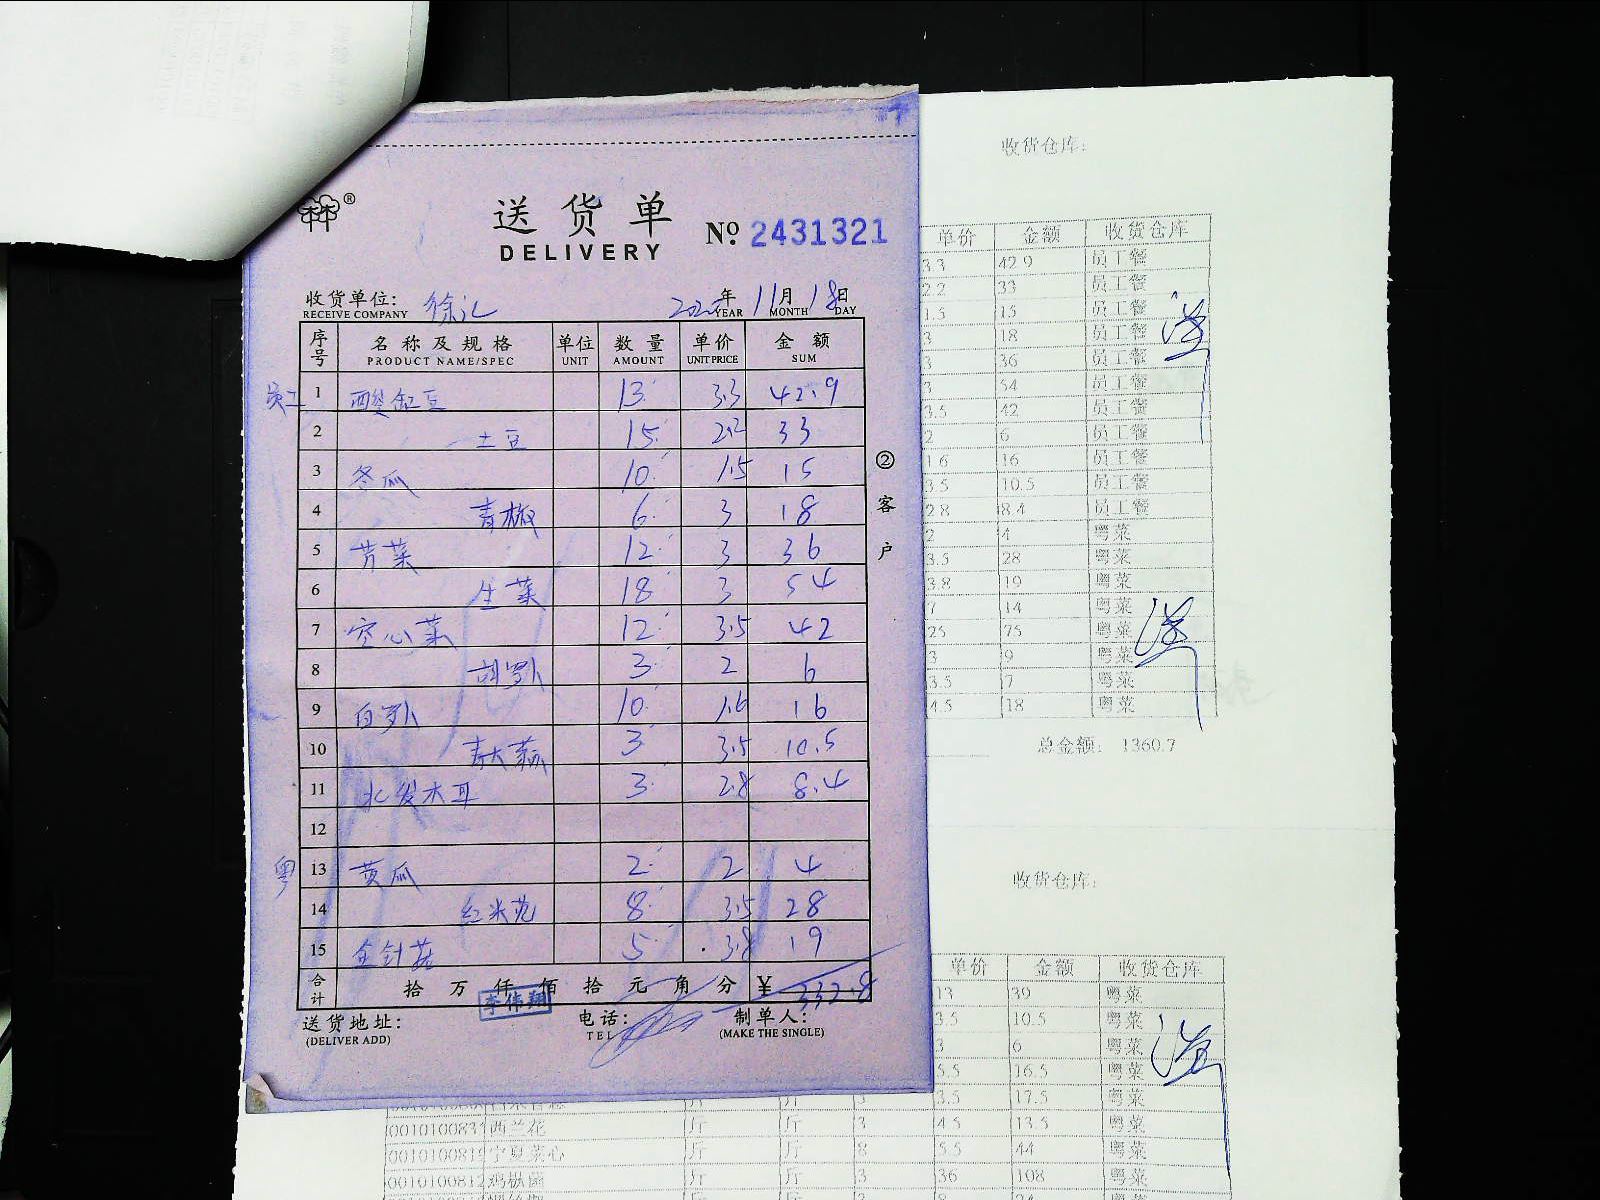 送货单
DELIVERY
№ 2431321
收货单位: 徐汇
RECEIVE COMPANY
年 11月 18日
YEAR MONTH DAY
序号 名称及规格 单位 数量 单价 金额
PRODUCT NAME/SPEC UNIT AMOUNT UNIT PRICE SUM
员工 1 酸缸豆 13 3.3 42.9
2 土豆 15 2.2 33
3 冬瓜 10 1.5 15
4 青椒 6 3 18
5 芹菜 12 3 36
6 生菜 18 3 54
7 空心菜 12 3.5 42
8 胡萝卜 3 2 6
9 白萝卜 10 1.6 16
10 青大蒜 3 3.5 10.5
11 水发木耳 3 2.8 8.4
12
粤 13 黄瓜 2 2 4
14 红米苋 8 3.5 28
15 金针菇 5 3.8 19
合计 拾 万 仟 佰 拾 元 角 分 ¥ 332.8
李伟翔
送货地址: 电话: 制单人:
(DELIVER ADD) TEL (MAKE THE SINGLE)
②客户
收货仓库:
单价 金额 收货仓库
3.3 42.9 员工餐
2.2 33 员工餐
1.5 15 员工餐
3 18 员工餐
3 36 员工餐
3 54 员工餐
3.5 42 员工餐
2 6 员工餐
1.6 16 员工餐
3.5 10.5 员工餐
2.8 8.4 员工餐
2 4 粤菜
3.5 28 粤菜
3.8 19 粤菜
7 14 粤菜
25 75 粤菜
3 9 粤菜
3.5 7 粤菜
4.5 18 粤菜
总金额: 1360.7
收货仓库:
单价 金额 收货仓库
13 39 粤菜
3.5 10.5 粤菜
3 6 粤菜
5.5 16.5 粤菜
3.5 17.5 粤菜
西兰花 斤 斤 3 4.5 13.5 粤菜
宁夏菜心 斤 斤 8 5.5 44 粤菜
鸡枞菌 斤 斤 3 36 108 粤菜